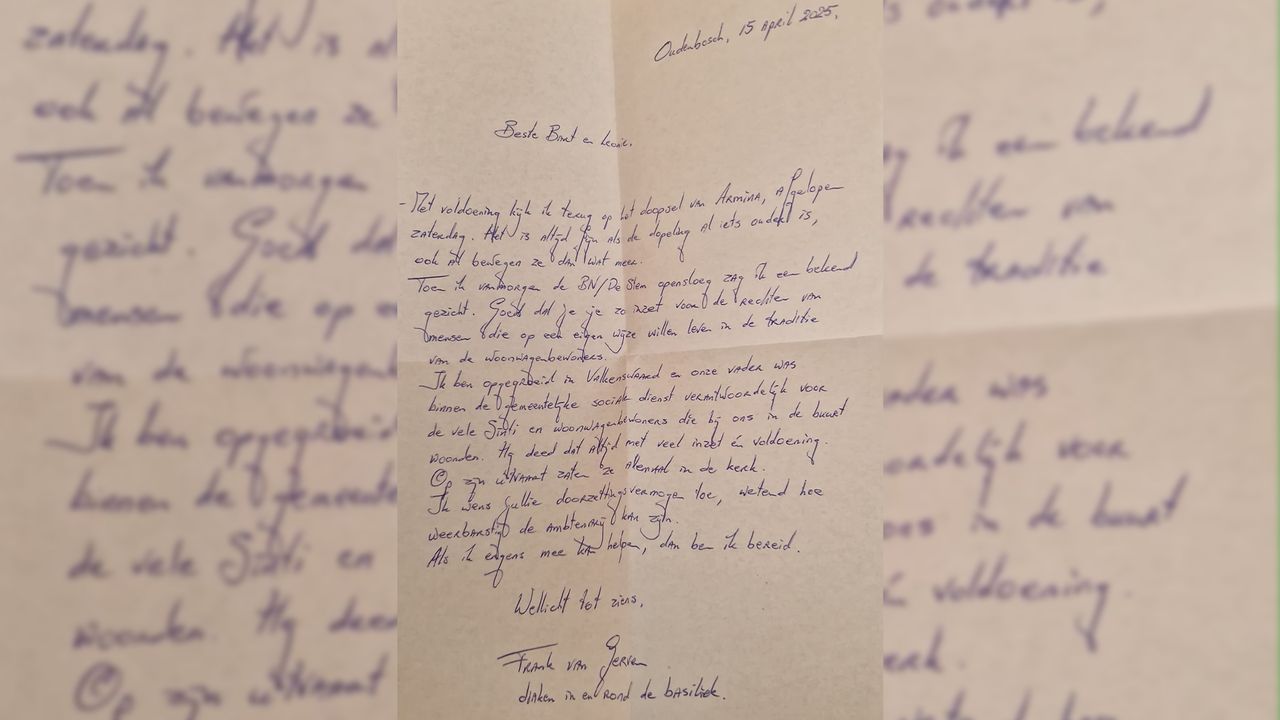 Oudenbosch, 15 April 2025.
Beste Bart en Leonie.
- Met voldoening kijk ik terug op het doopsel van Armina, afgelopen
zaterdag. Het is altijd fijn als de dopeling al iets ouder is,
ook al bewegen ze dan wat meer.
Toen ik vanmorgen de BN/De Stem opensloeg zag ik een bekend
gezicht. Goed dat je je zo inzet voor de rechten van
mensen die op een eigen wijze willen leven in de traditie
van de woonwagenbewoners.
Ik ben opgegroeid in Valkenswaard en onze vader was
binnen de gemeentelijke sociale dienst verantwoordelijk voor
de vele Sinti en woonwagenbewoners die bij ons in de buurt
woonden. Hij deed dat altijd met veel inzet én voldoening.
Op zijn uitvaart zaten ze allemaal in de kerk.
Ik wens jullie doorzettingsvermogen toe, wetend hoe
weerbarstig de ambtenarij kan zijn.
Als ik ergens mee kan helpen, dan ben ik bereid.
Wellicht tot ziens,
Frank van Gerven
diaken in en rond de basiliek.